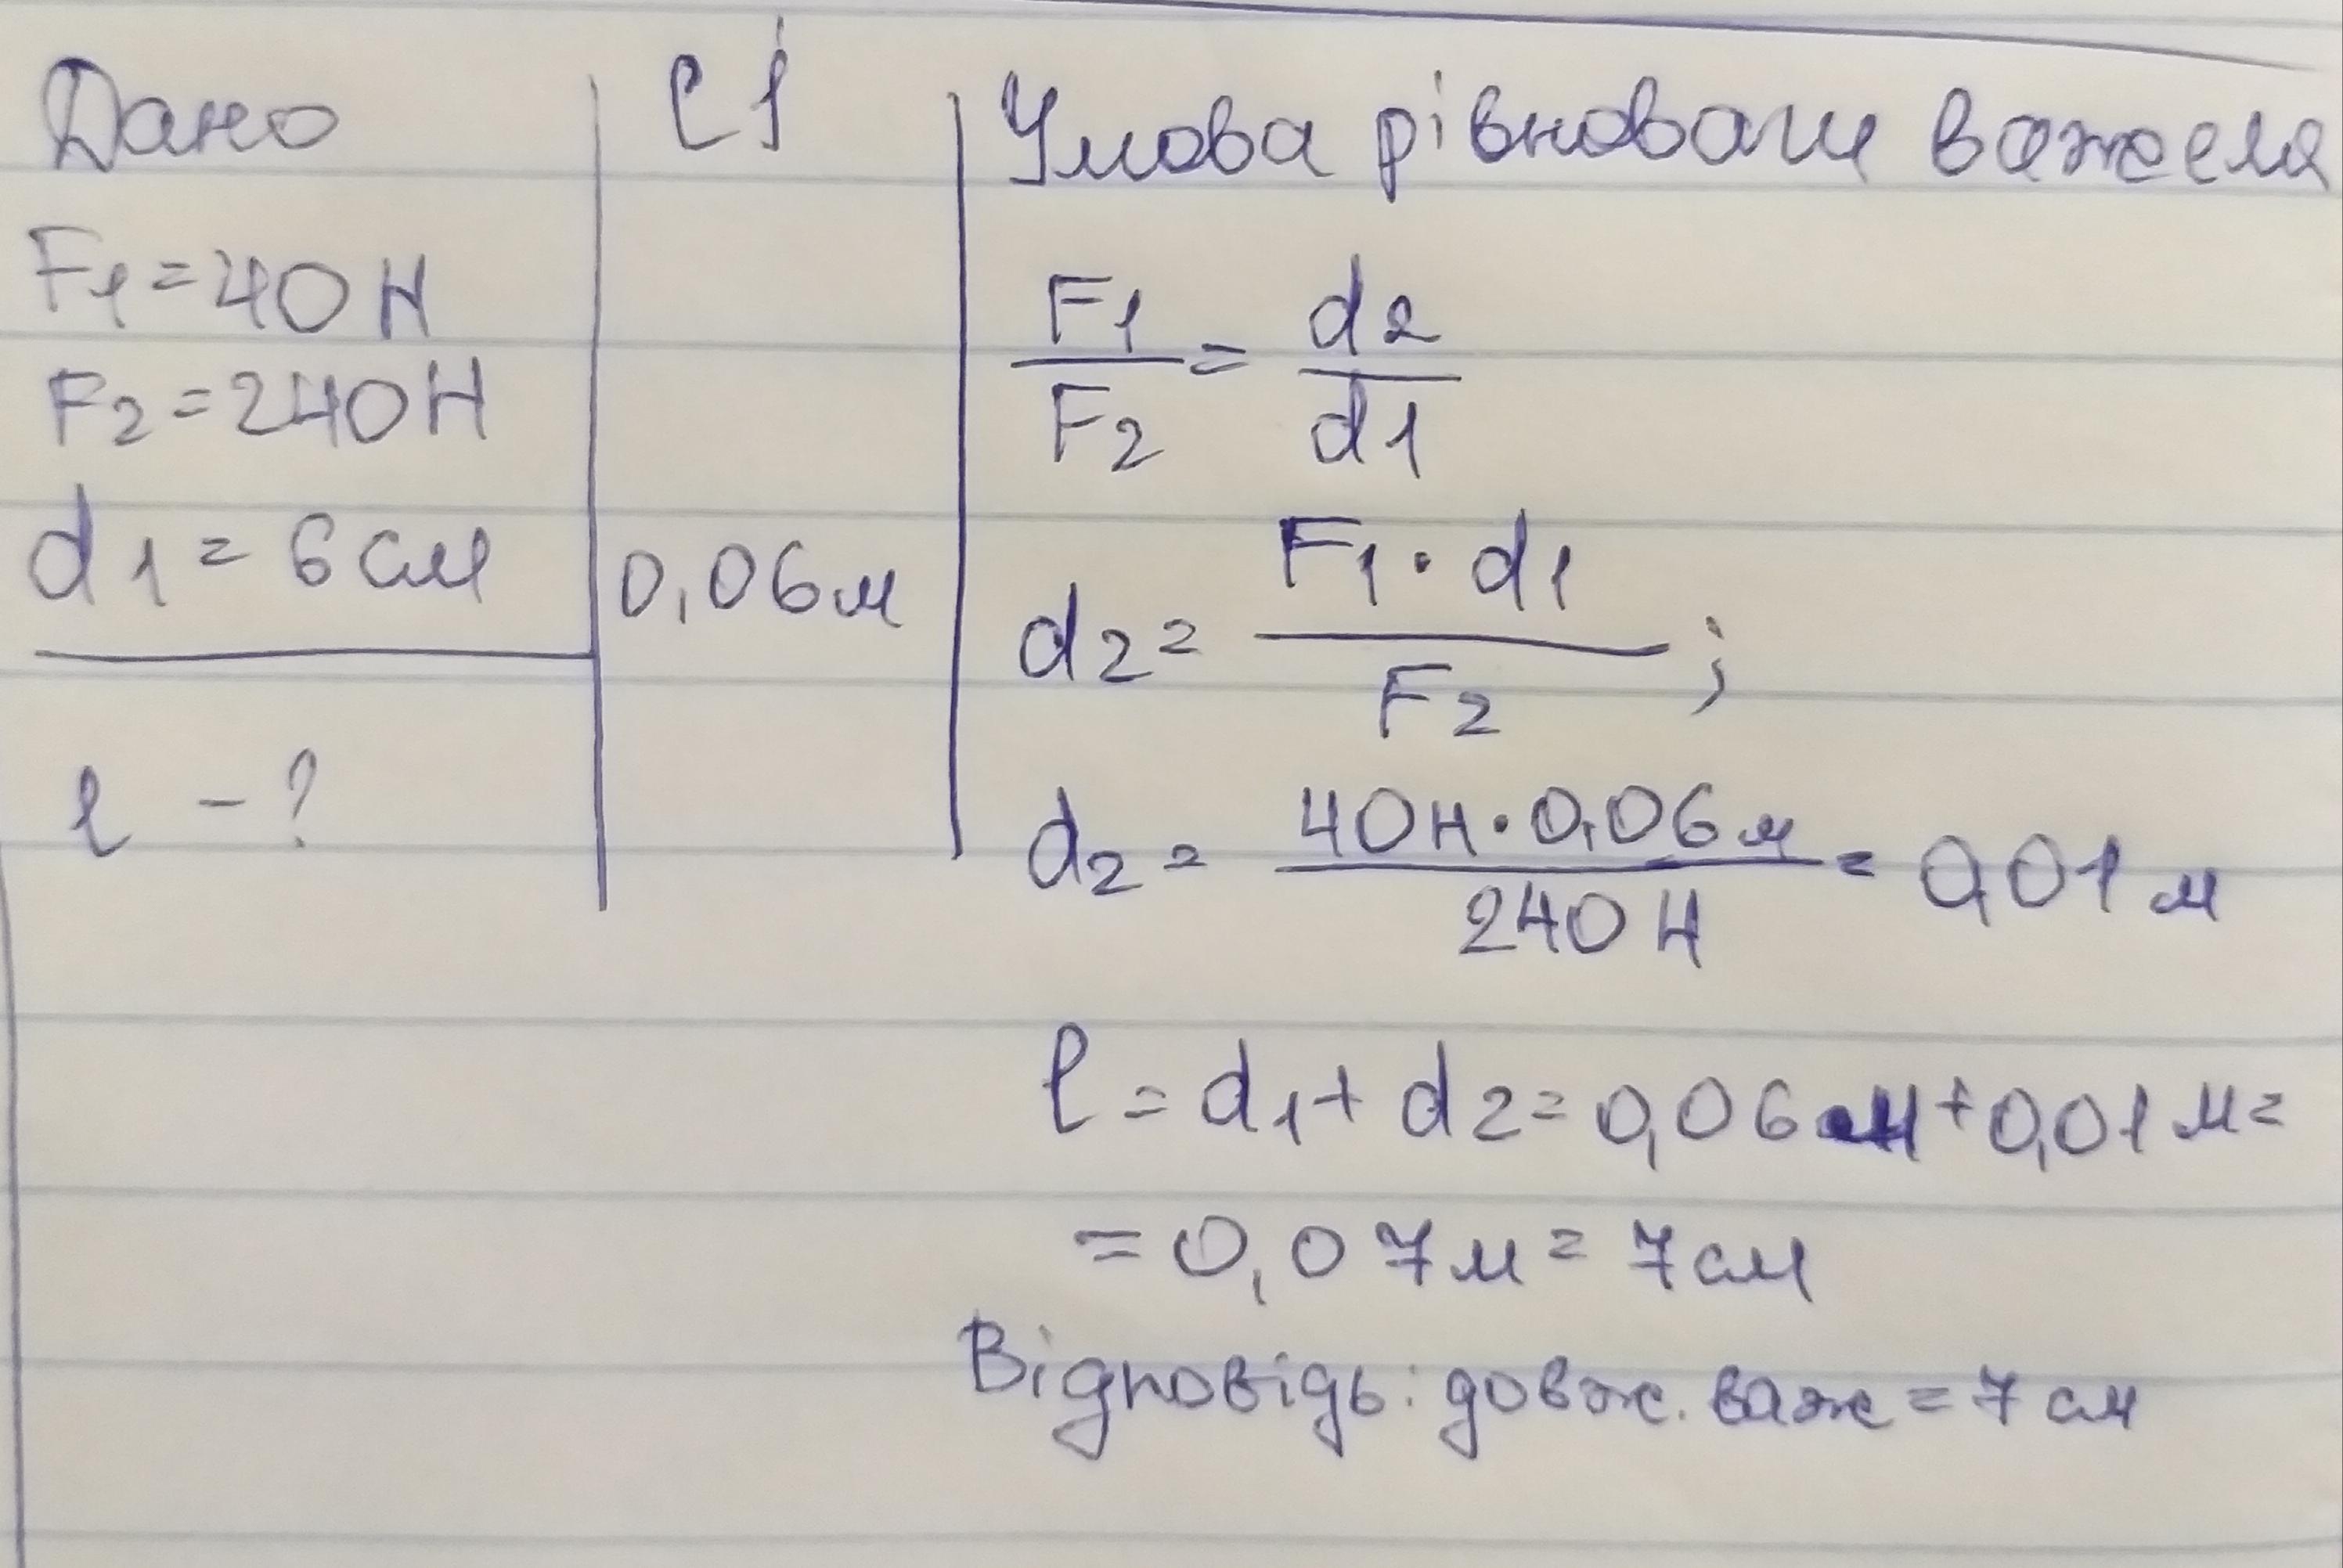 Дано
F1 = 40 Н
F2 = 240 Н
d1 = 6 см
l - ?
СІ
0,06 м
Умова рівноваги важеля
F1/F2 = d2/d1
d2 = F1 · d1/F2 ;
d2 = 40 Н · 0,06 м/240 Н = 0,01 м
l = d1 + d2 = 0,06 м + 0,01 м =
= 0,07 м = 7 см
Відповідь: довж. важ = 7 см